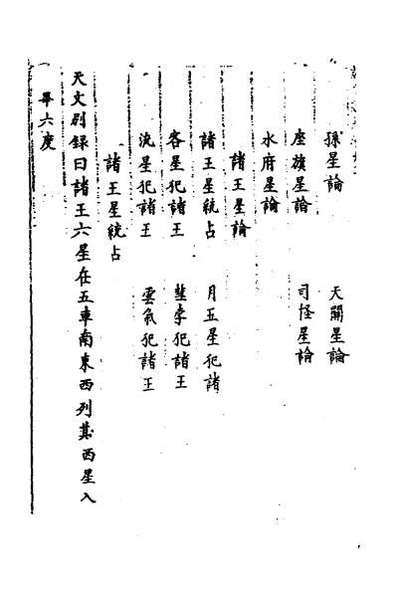 孫星論　天關星論
座旗星論　司怪星論
水府星論
諸王星論
諸王星統占　月五星犯諸
客星犯諸王　彗孛犯諸王
流星犯諸王　雲氣犯諸王
諸王星統占
天文別錄曰諸王六星在五車南東西列其西星入
畢六度